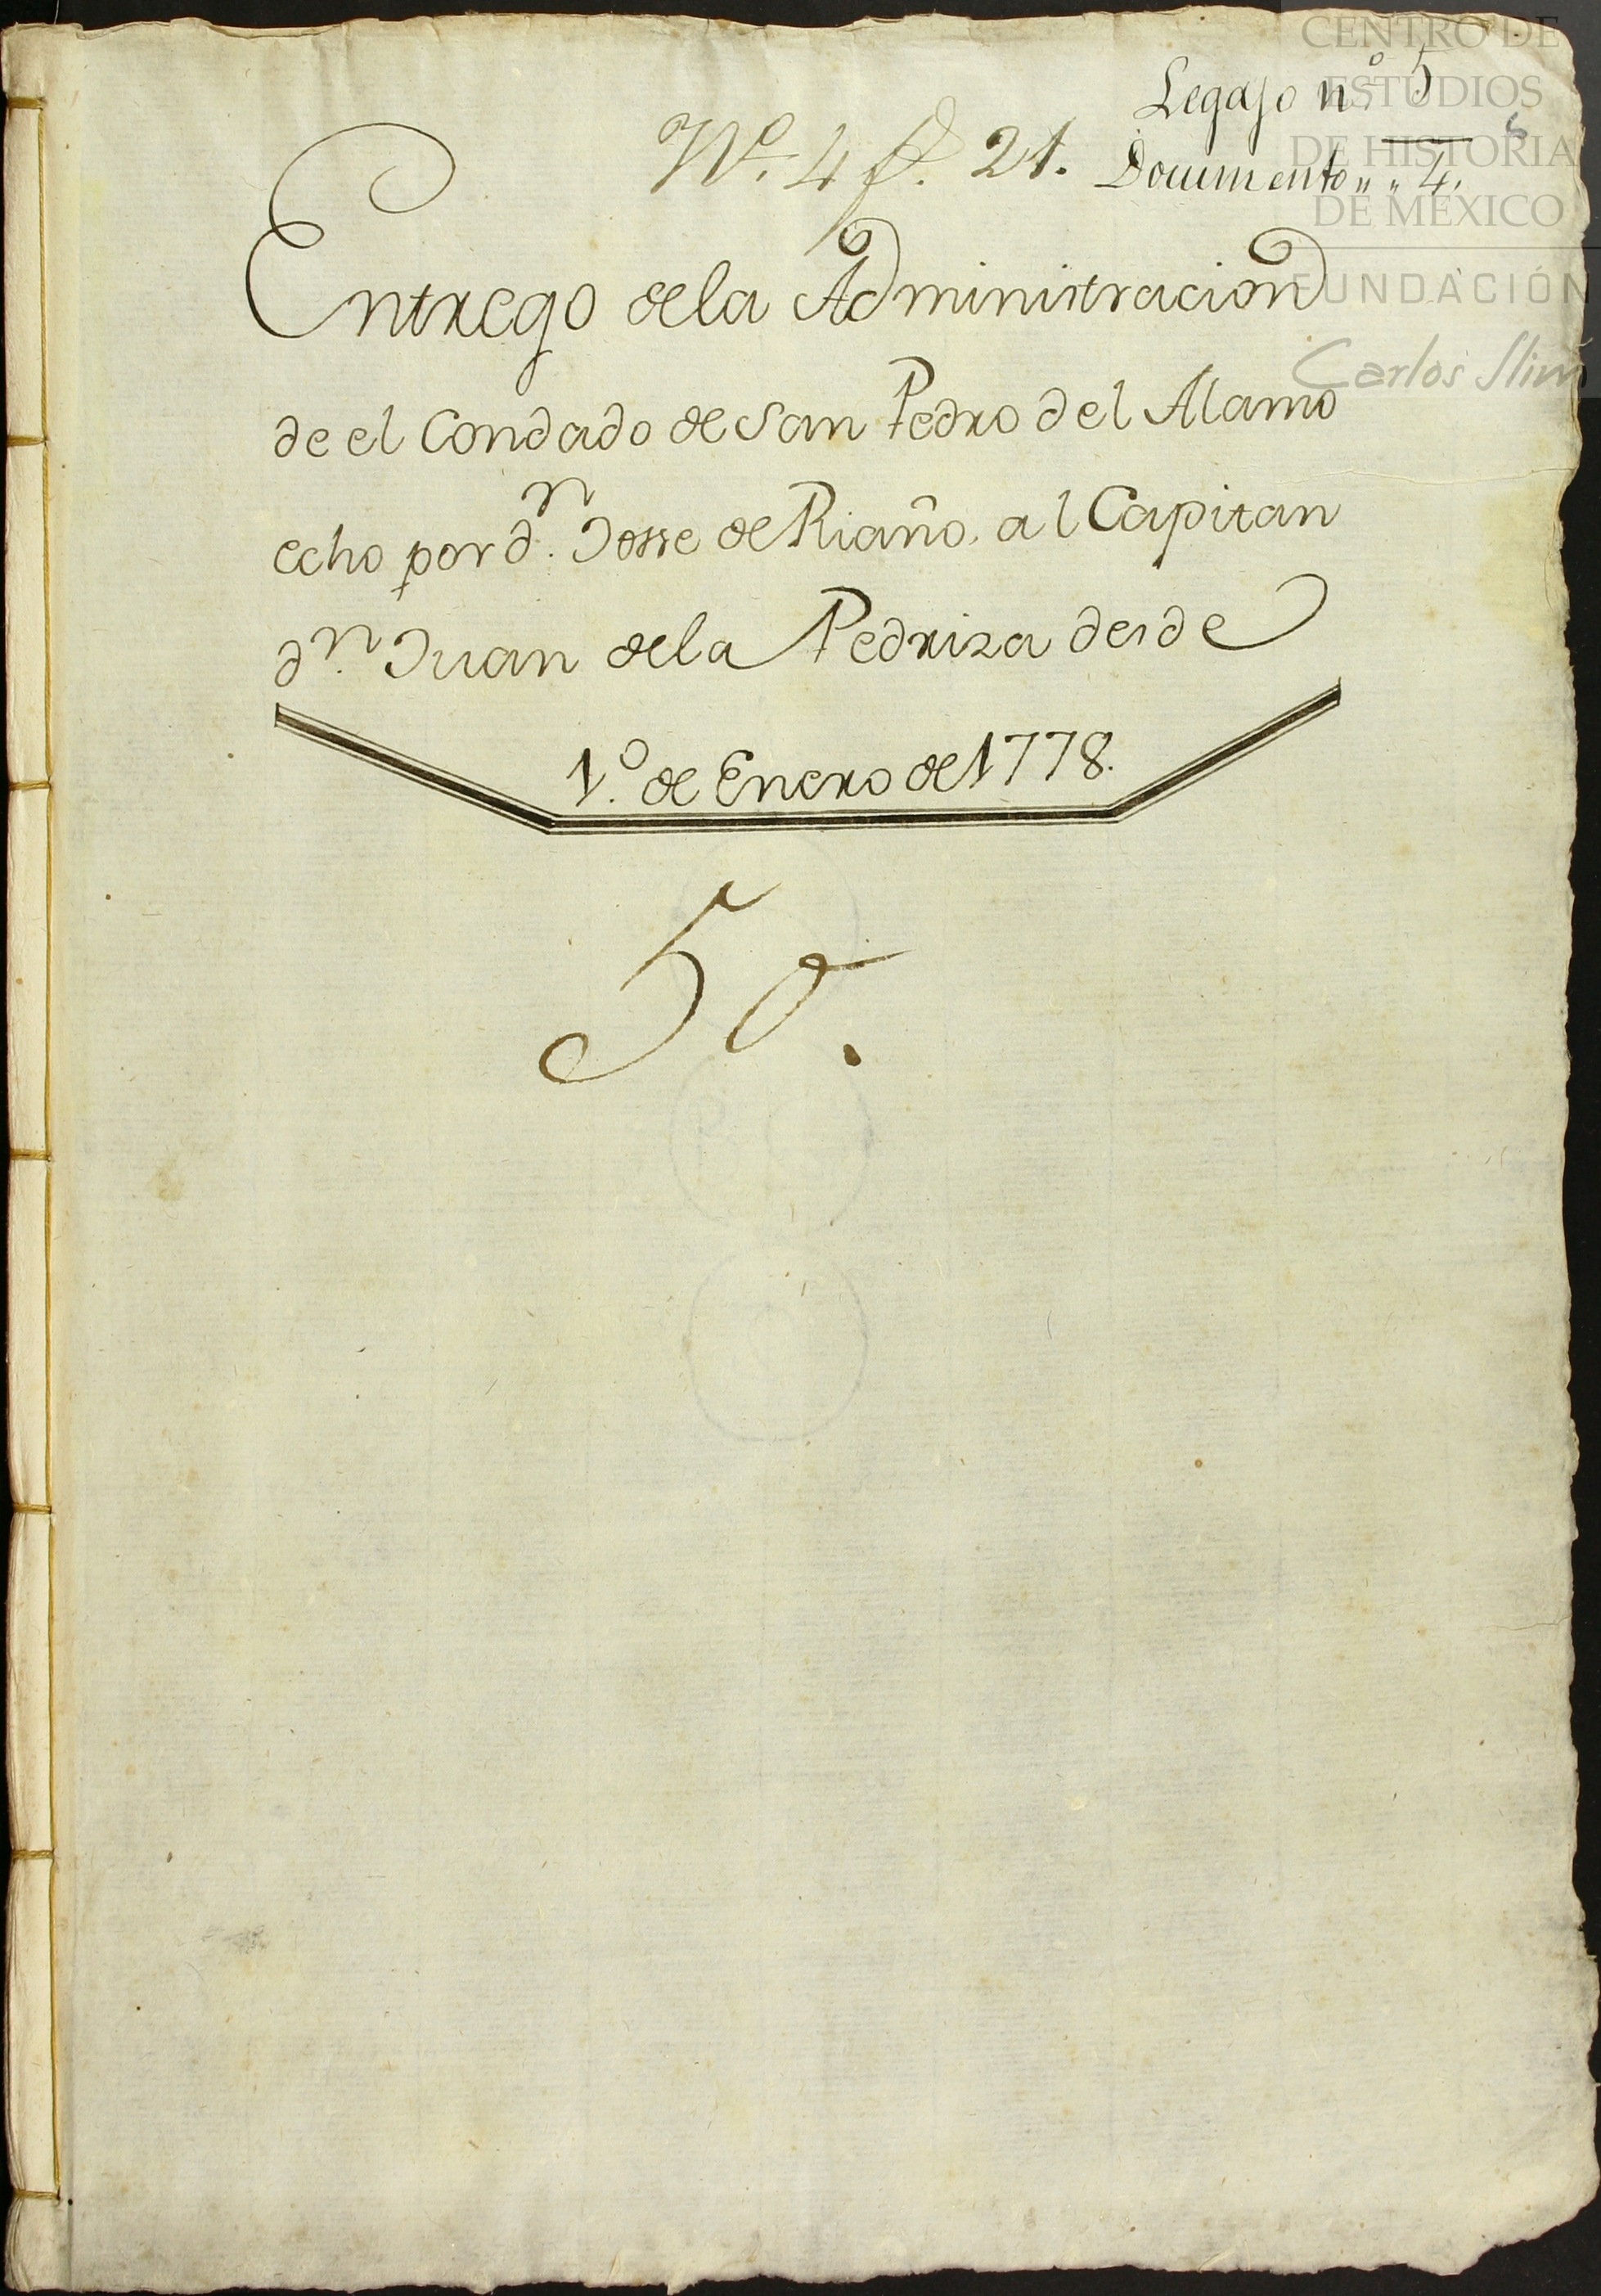 Legajo nº. 5
Nº. 4 f. 21.
Documento „ „ 4.
Entrego dela Administracion
de el Condado de San Pedro del Alamo
echo por dⁿ. Josse de Riaño, al Capitan
dⁿ. Juan dela Pedriza desde
1.º de Enero de 1778.
5o.
CENTRO DE
ESTUDIOS
DE HISTORIA
DE MÉXICO
FUNDACIÓN
Carlos Slim